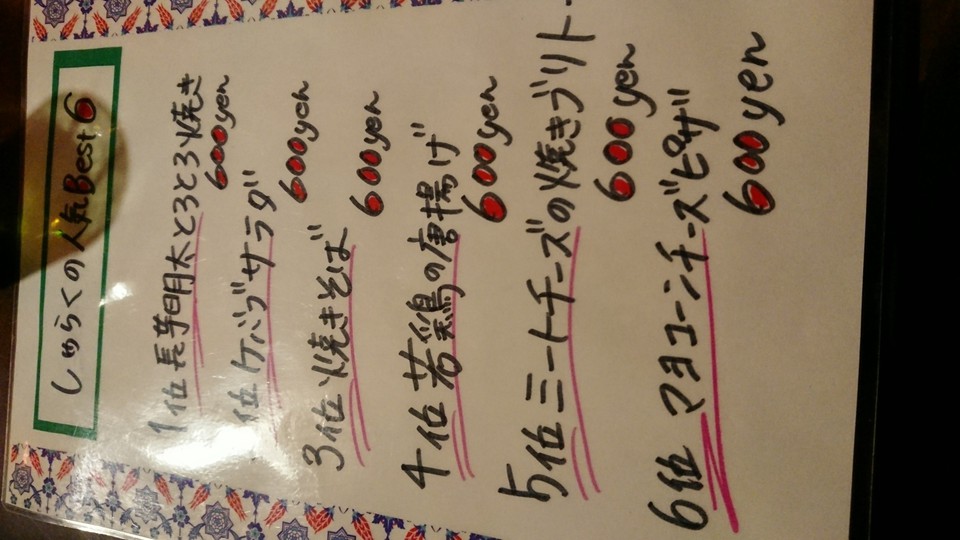 しゅらくの人気Best6
1位 長芋明太とろとろ焼き
600yen
位 ケバブサラダ
600yen
3位 焼きそば
600yen
4位 若鶏の唐揚げ
600yen
5位 ミートチーズの焼きブリトー
600yen
6位 マヨコーンチーズピザ
600yen